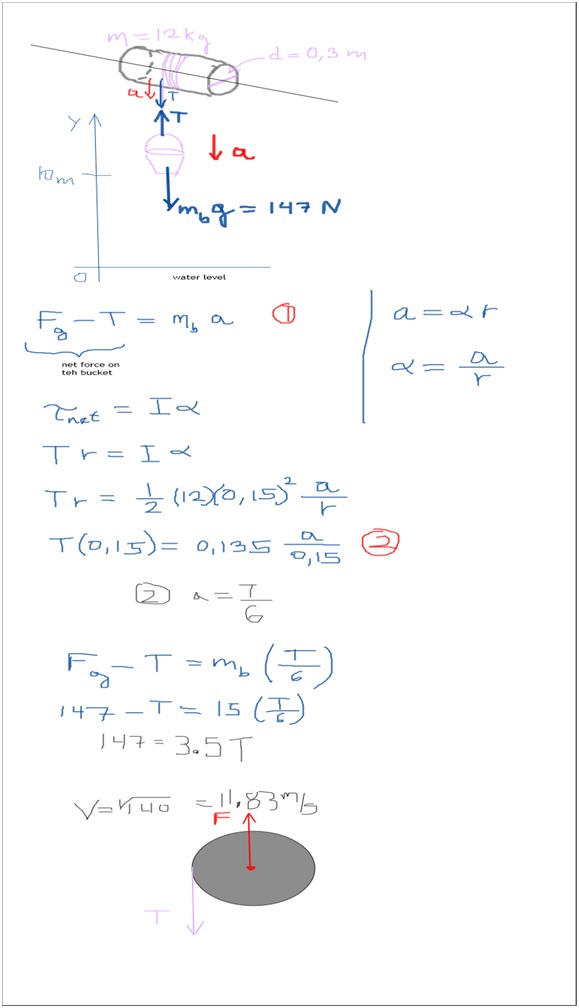 m = 12 kg
d = 0,3 m
a T
T
Y
a
10m
m_b g = 147 N
0
water level
F_g − T = m_b a ①
net force on
teh bucket
a = α r
α = a/r
τ_net = I α
T r = I α
T r = 1/2 (12)(0,15)² a/r
T(0,15) = 0,135 a/0,15 ②
2 a = T/6
F_g − T = m_b (T/6)
147 − T = 15 (T/6)
147 = 3.5T
V = √140 = 11,83 m/s
F
T